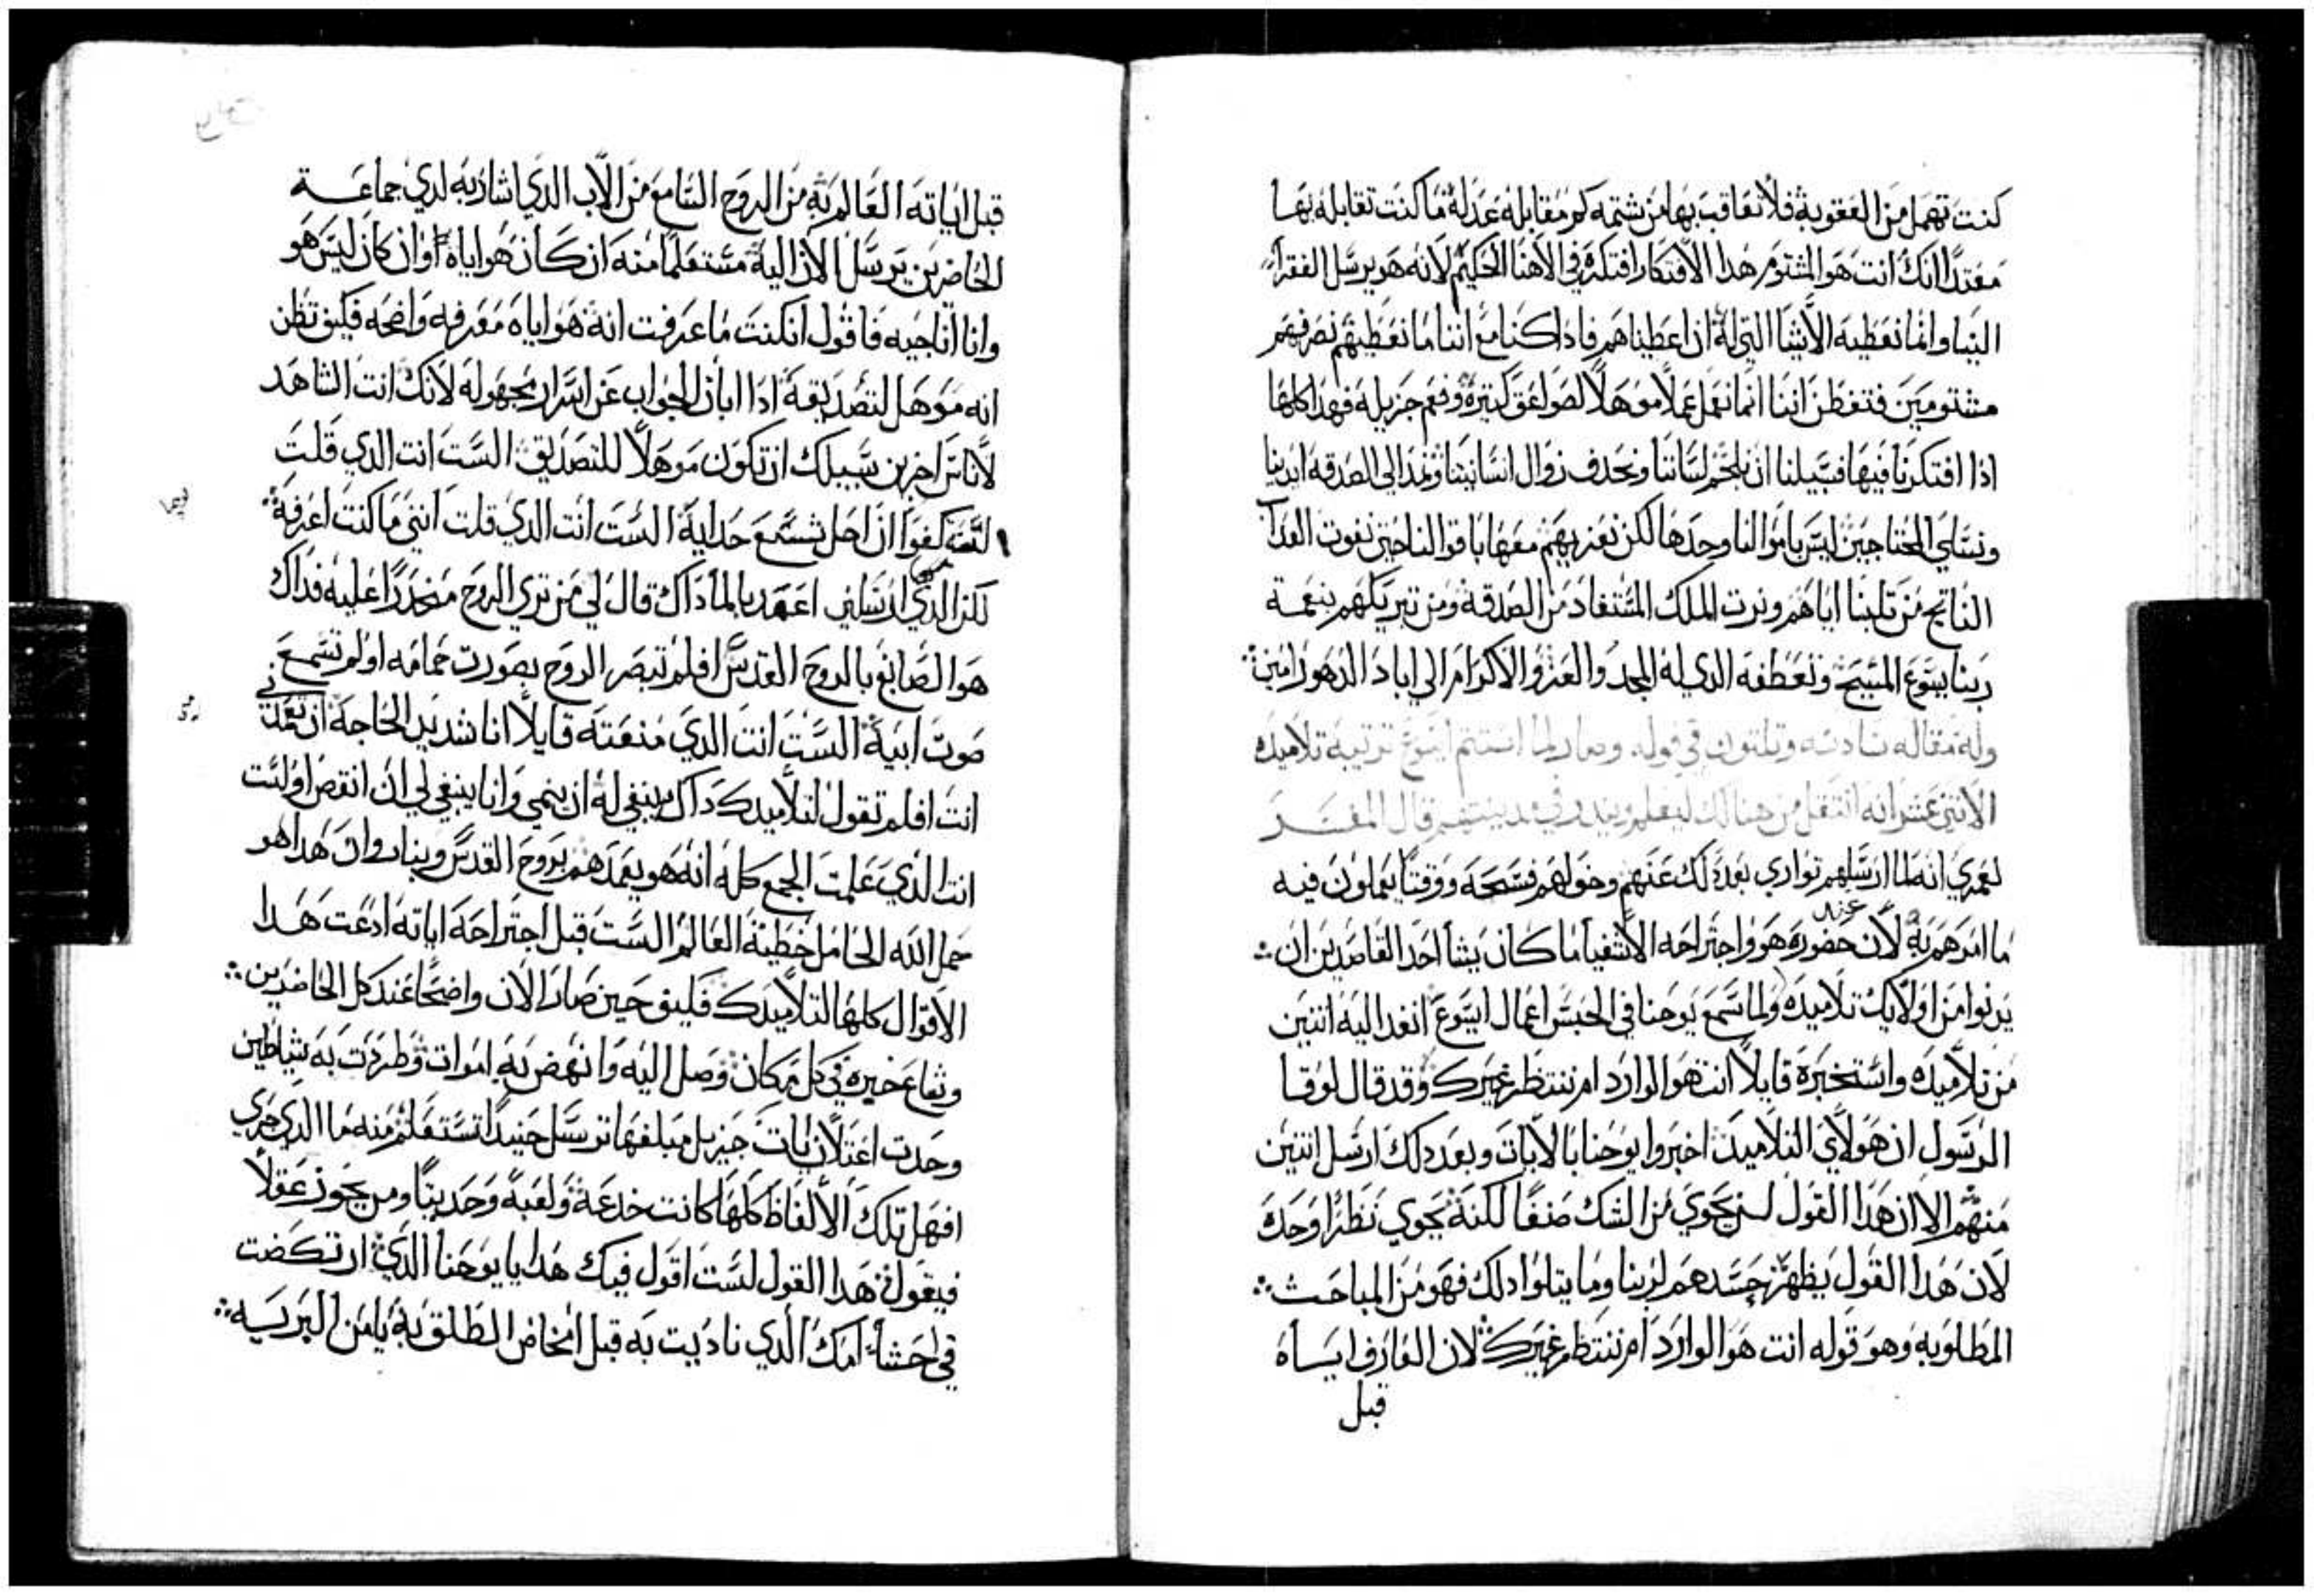 كنت تهمل من العقوبة فلا تعاقب بها من شتمه كم مقابله عدلة ما كنت تقابله بها
معتدًا انك انت هو المشتوم هدا الافتكار افتكره في الاهنا الحكيم لانه هو يرسل الفقرا
الينا وانما نعطيه الاشيا التي له ان اعطيناهم فاداكنا مع اننا ما نعطيهم نصرفهم
مشتومين فتفطن اننا انما نعمل عملًا موهلًا لصواعق كتيرة وفعم جزيله فهدا كلها
ادا افتكرنا فيها فسبيلنا ان نلجم لساننا ونحدف زوال انسانيتنا ونمد الي الصدقه ايدينا
ونسلي المحتاجين ليس بامو النا وحدها لكن نعزيهم معها باقوالنا حين نفوت العدا
الناتج من تلبنا اياهم ونرت الملك المستفاد من الصدقه ومن تبريكهم بنعمة
ربنا يسوع المسيح وتعطفه الدي له المجد والعز والاكرام الي اباد الدهور امين
وله مقاله سادسه وتلتون في قوله وصار لما استتم ايسوع توتيبه تلاميده
الاتني عشر انه انتقل من هنالك ليعلم وينادي في مدينتهم قال المفسر
لعمري انه لما ارسلهم تواري بعد دلك عنهم وخولهم فسحه ووقتًا يعملون فيه
ما امرهم به لان عند حضوره هو واجتراحه الاشفيا ما كان يشا احد القاصدين ان
يدنوا من اولايك تلاميده ولما سمع يوحنا في الحبس اعمال ايسوع انفد اليه اتنين
من تلاميده واستخبره قايلًا انت هو الوارد ام ننتظر غيرك وقد قال لوقا
الرسول ان هولاي التلاميد اخبروا يوحنا بالايات وبعد دلك ارسل اتنين
منهم الا ان هدا القول ليس يحوي من الشك صنفًا لكنه يحوي نظرًا وحدك
لان هدا القول يظهر حسدهم لربنا وما يتلوا دلك فهو من المباحث
المطلوبه وهو قوله انت هو الوارد ام ننتظر غيرك لان العارف ايساه
قبل
قبل اياته العالم به من الروح السامع من الاب الدي اشاربه لدي جماعة
الحاضرين يرسل الان اليه مستعلمًا منه ان كان هو اياه او ان كان ليس هو
وانا اناجيه فاقول انكنت ما عرفت انه هو اياه معرفه واضحه فكيف تظن
انه موهل لتصديقه ادا ابان الجواب عن اسرار مجهوله لانك انت الشاهد
لاناس اخرين سبيلك ان تكون موهلًا للتصديق الست انت الدي قلت
لست كفوًا ان احل شسع حدايه الست انت الدي قلت انني ما كنت اعرفه
لكن الدي ارسلني اعمد بالما داك قال لي من تري الروح منحدرًا عليه فداك
هو الصابغ بالروح القدس افلم تبصر الروح بصورت حمامه اولم تسمع
صوت ابيه الست انت الدي منعته قايلًا انا شديد الحاجة ان تعمدني
انت افلم تقول لتلاميدك داك ينبغي له ان ينمي وانا ينبغي لي ان انقص اولست
انت الدي علمت الجمع كله انه هو يعمدهم بروح القدس وبنار وان هدا هو
حمل الله الحامل خطية العالم الست قبل اجتراحه اياته ادعت هدا
الاقوال كلها لتلاميدك فكيف حين صار الان واضحًا عند كل الحاضرين
وشاع خبره في كل مكان وصل اليه وانهض به اموات وطردت به شياطين
وحدت اعتلان ايات جزيل مبلغها ترسل حنيدًا تستعلم منه ما الدي جري
افهل تلك الالفاظ كلها كانت خدعة ولعبة وحديتًا ومن يحوز عقلًا
فيقول هدا القول لست اقول فيك هدا يا يوحنا الدي ارتكضت
في احشاء امك الدي ناديت به قبل امخاض الطلق به يامن البريه